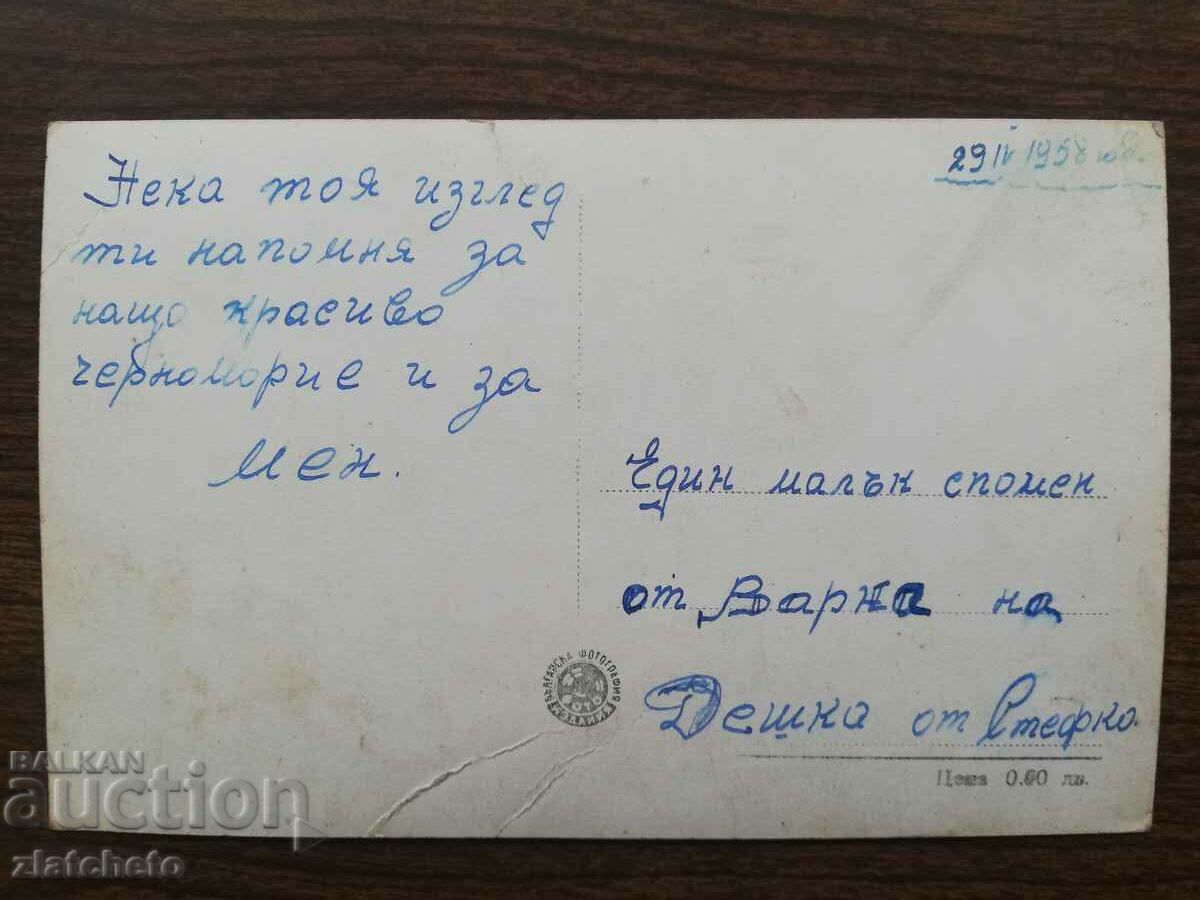 29 IV 1958 год.
Нека тоя изглед
ти напомня за
нащо красиво
черноморие и за
мен.
Един малък спомен
от Варна на
Дешка от Стефко.
БЪЛГАРСКА ФОТОГРАФИЯ
ФОТО
ИЗДАНИЯ
Цена 0.60 лв.
BALKAN
auction
zlatcheto